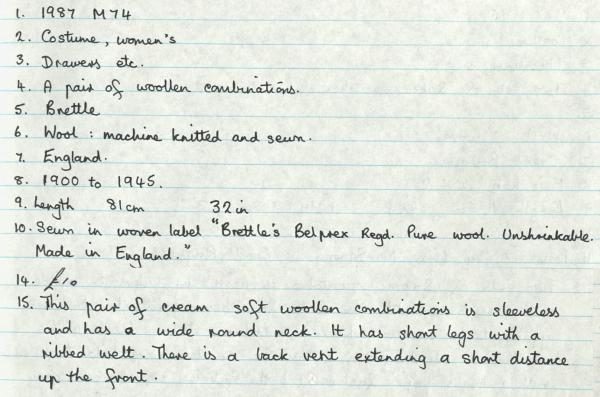 1. 1987 M74
2. Costume, women's
3. Drawers etc.
4. A pair of woollen combinations.
5. Brettle
6. Wool : machine knitted and sewn.
7. England.
8. 1900 to 1945.
9. Length 81cm 32 in
10. Sewn in woven label "Brettle's Belprex Regd. Pure wool. Unshrinkable.
Made in England."
14. £10
15. This pair of cream soft woollen combinations is sleeveless
and has a wide round neck. It has short legs with a
ribbed welt. There is a back vent extending a short distance
up the front.